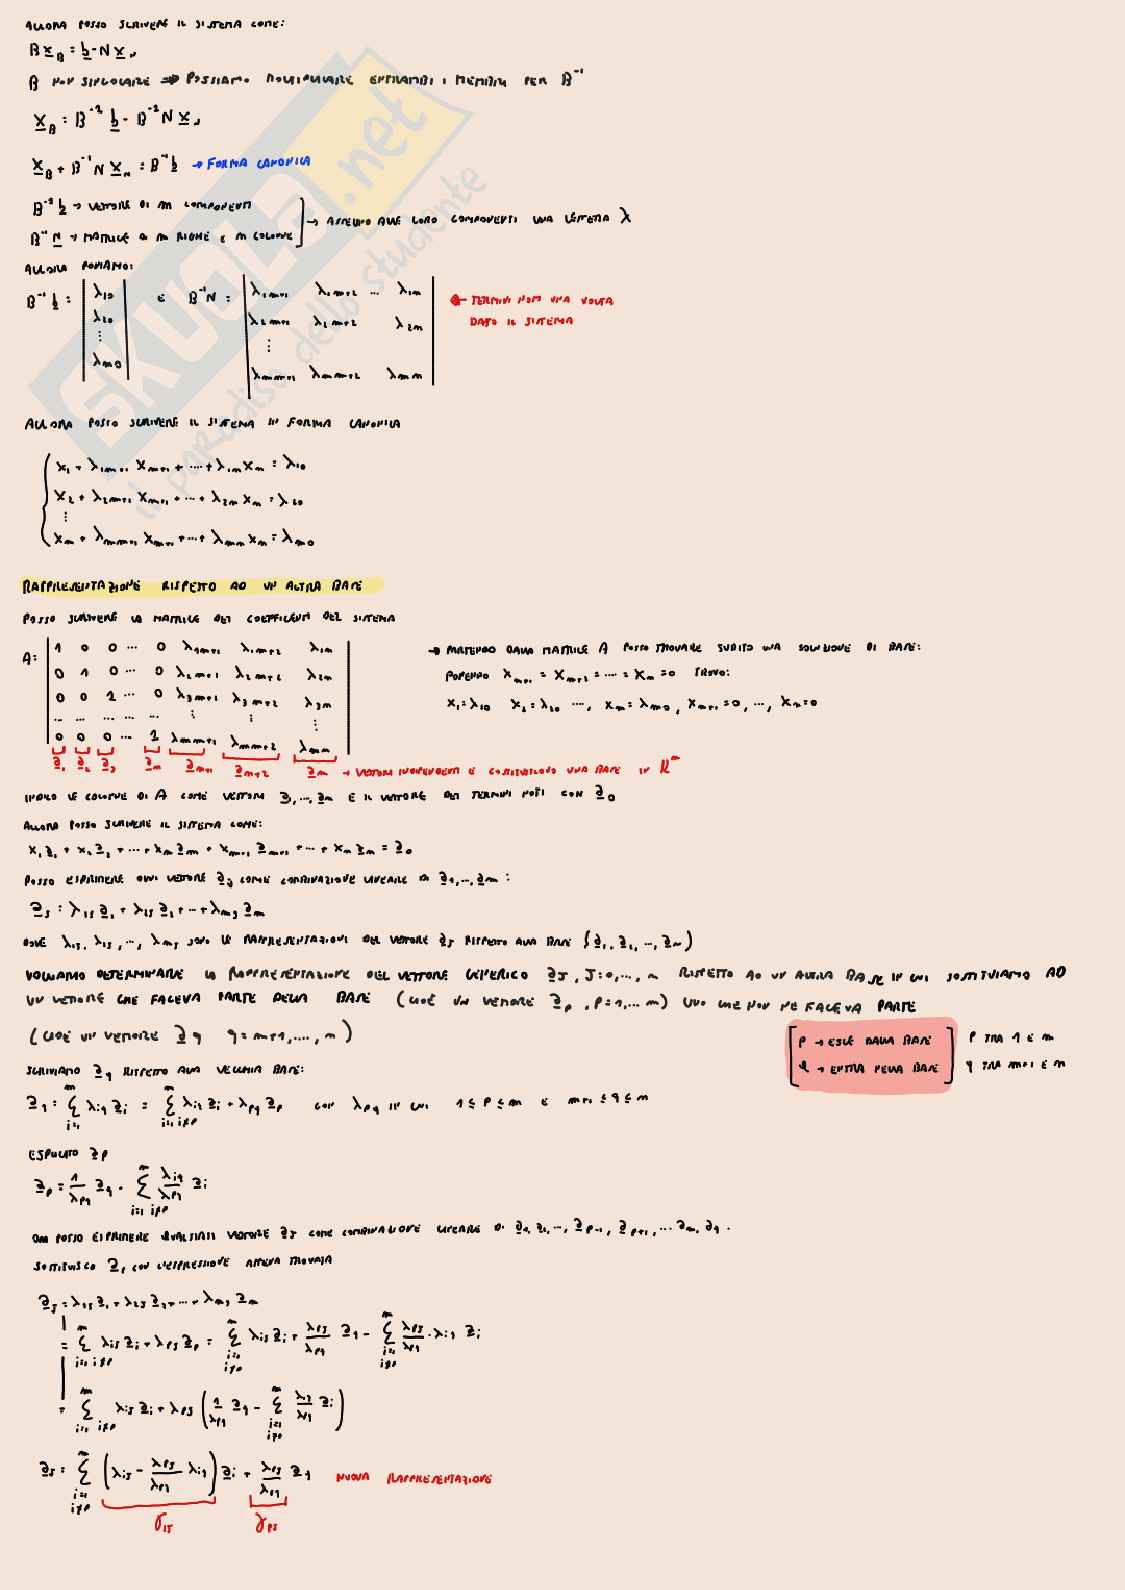 ALLORA POSSO SCRIVERE IL SISTEMA COME:
B x_B = b - N x_N
B NON SINGOLARE ⇒ POSSIAMO MOLTIPLICARE ENTRAMBI I MEMBRI PER B⁻¹
x_B = B⁻¹ b - B⁻¹ N x_N
x_B + B⁻¹ N x_N = B⁻¹ b → FORMA CANONICA
B⁻¹ b → VETTORE DI m COMPONENTI
B⁻¹ N → MATRICE DI m RIGHE E n COLONNE → ASSEGNO ALLE LORO COMPONENTI UNA LETTERA λ
ALLORA PONIAMO:
B⁻¹ b = | λ10 λ20 ⋮ λm0 | E B⁻¹N = | λ1m+1 λ1m+2 ... λ1n
λ2m+1 λ2m+2 λ2n
⋮
λmm+1 λmm+2 λmn |
← TERMINI NOTI UNA VOLTA
DATO IL SISTEMA
ALLORA POSSO SCRIVERE IL SISTEMA IN FORMA CANONICA
x1 + λ1m+1 xm+1 + ... + λ1n xn = λ10
x2 + λ2m+1 xm+1 + ... + λ2n xn = λ20
⋮
xm + λmm+1 xm+1 + ... + λmn xn = λm0
RAPPRESENTAZIONE RISPETTO AD UN'ALTRA BASE
POSSO SCRIVERE LA MATRICE DEI COEFFICIENTI DEL SISTEMA
A: | 1 0 0 ... 0 λ1m+1 λ1m+2 λ1n
0 1 0 ... 0 λ2m+1 λ2m+2 λ2n
0 0 1 ... 0 λ3m+1 λ3m+2 λ3n
... ... ... ... ... ⋮ ⋮ ⋮
0 0 0 ... 1 λmm+1 λmm+2 λmn |
→ PARTENDO DALLA MATRICE A POSSO TROVARE SUBITO UNA SOLUZIONE DI BASE:
PONENDO xm+1 = xm+2 = .... = xn = 0 TROVO:
x1 = λ10 x2 = λ20 ...., xm = λm0, xm+1 = 0, ..., xn = 0
a1 a2 a3 am am+1 am+2 an → VETTORI INDIPENDENTI E COSTITUISCONO UNA BASE IN ℝᵐ
INDICO LE COLONNE DI A COME VETTORI a1,...,an E IL VETTORE DEI TERMINI NOTI CON a0
ALLORA POSSO SCRIVERE IL SISTEMA COME:
x1 a1 + x2 a2 + ... + xm am + xm+1 am+1 + ... + xn an = a0
POSSO ESPRIMERE OGNI VETTORE aj COME COMBINAZIONE LINEARE DI a1,...,am :
aj = λ1j a1 + λ2j a2 + ... + λmj am
DOVE λ1j, λ2j, ..., λmj SONO LE RAPPRESENTAZIONI DEL VETTORE aj RISPETTO ALLA BASE {a1, a2, ..., am}
VOGLIAMO DETERMINARE LA RAPPRESENTAZIONE DEL VETTORE GENERICO aj, J=0,..., n RISPETTO AD UN'ALTRA BASE IN CUI SOSTITUIAMO AD
UN VETTORE CHE FACEVA PARTE DELLA BASE (CIOÈ UN VETTORE ap, P=1,... m) UNO CHE NON NE FACEVA PARTE
(CIOÈ UN VETTORE aq q=m+1,...., n)
P → ESCE DALLA BASE P TRA 1 E m
q → ENTRA NELLA BASE q TRA m+1 E n
SCRIVIAMO aq RISPETTO ALLA VECCHIA BASE:
aq = Σ(i=1..m) λiq ai = Σ(i=1 i≠p..m) λiq ai + λpq ap CON λpq IN CUI 1 ≤ P ≤ m E m+1 ≤ q ≤ n
ESPLICITO ap
ap = 1/λpq aq - Σ(i=1 i≠p..m) λiq/λpq ai
ORA POSSO ESPRIMERE QUALSIASI VETTORE aj COME COMBINAZIONE LINEARE DI a1, a2, ..., ap-1, ap+1, ... am, aq.
SOSTITUISCO ap CON L'ESPRESSIONE APPENA TROVATA
aj = λ1j a1 + λ2j a2 + ... + λmj am
= Σ(i=1 i≠p..m) λij ai + λpj ap = Σ(i=1 i≠p..m) λij ai + λpj/λpq aq - Σ(i=1 i≠p..m) λpj/λpq · λiq ai
= Σ(i=1 i≠p..m) λij ai + λpj (1/λpq aq - Σ(i=1 i≠p..m) λiq/λpq ai)
aj = Σ(i=1 i≠p..m) (λij - λpj/λpq λiq) ai + λpj/λpq aq NUOVA RAPPRESENTAZIONE
γij γpj
SKUOLA.net
il paradiso dello studente